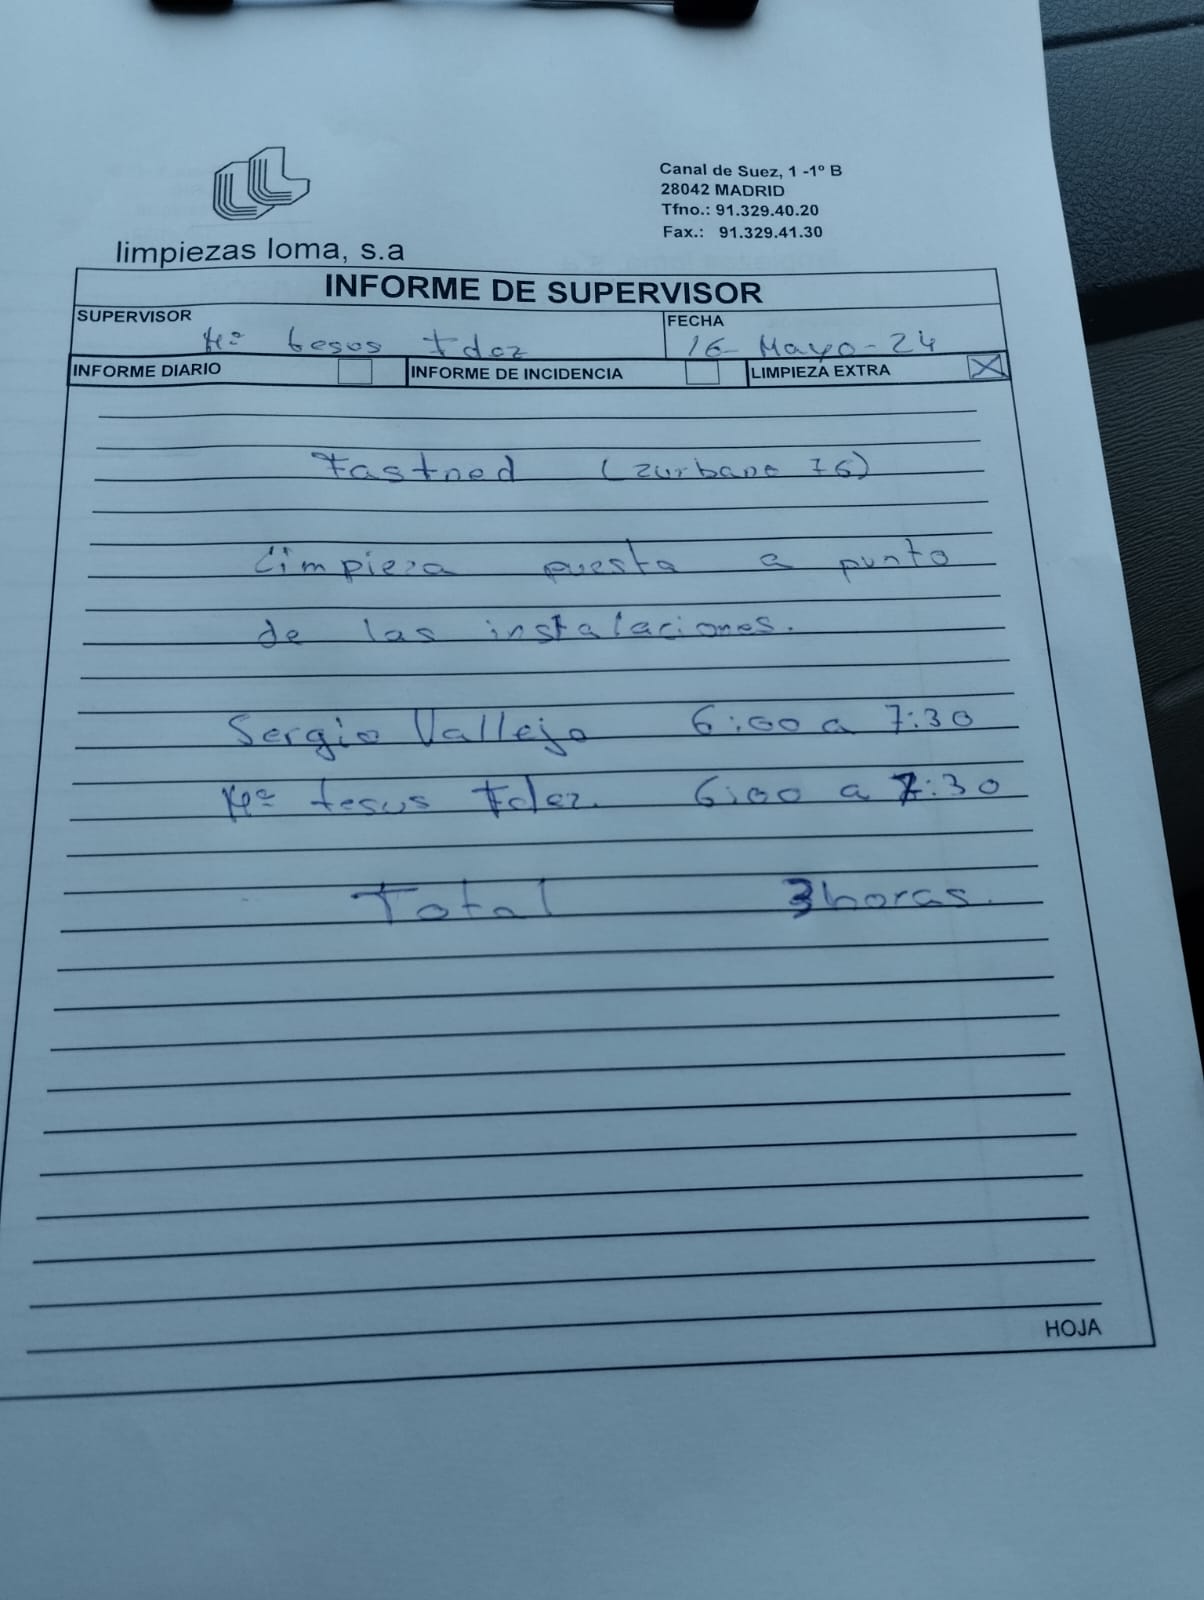 limpiezas loma, s.a
Canal de Suez, 1 -1º B
28042 MADRID
Tfno.: 91.329.40.20
Fax.: 91.329.41.30
INFORME DE SUPERVISOR
SUPERVISOR Mª Jesus Fdez
FECHA 16- Mayo-24
INFORME DIARIO
INFORME DE INCIDENCIA
LIMPIEZA EXTRA X
Fastned (zurbano 76)
Limpieza puesta a punto
de las instalaciones.
Sergio Vallejo 6:00 a 7:30
Mª Jesus Fdez. 6:00 a 7:30
Total 3 horas.
HOJA